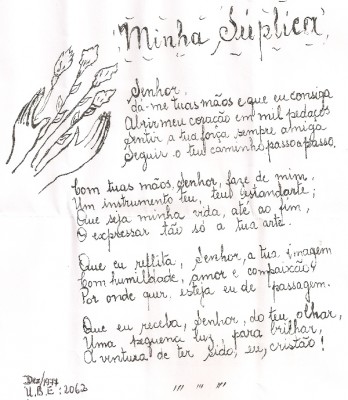 Minha Súplica
Senhor,
dá-me tuas mãos e que eu consiga
Abrir meu coração em mil pedaços
Sentir a tua força, sempre amiga
Seguir o teu caminho passo a passo.
Com tuas mãos, Senhor, faze de mim,
Um instrumento teu, teu estandarte;
Que seja minha vida, até ao fim,
O expressar tão só a tua arte.
Que eu reflita, Senhor, a tua imagem
Com humildade, amor e compaixão,
Por onde quer, esteja eu de passagem.
Que eu receba, Senhor, do teu olhar,
Uma pequena luz para brilhar,
A ventura de ter sido, eu, cristão!
Dez/1977
U.B.E: 2063